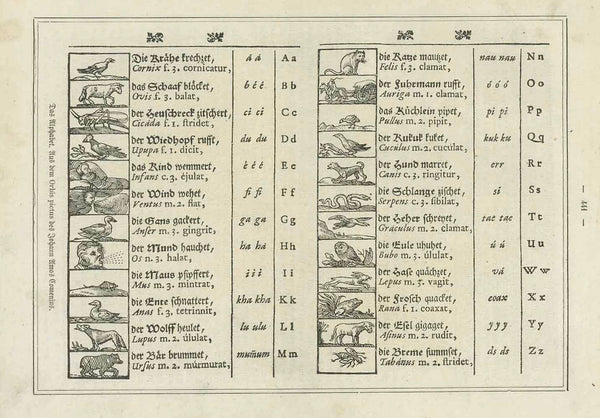 Die Krähe krechzet, á á A a
Cornix f. 3. cornicatur,
das Schaaf blöcket, b é é B b
Ovis f. 3. balat,
der Heuschreck zitschert, ci ci C c
Cicáda f. 1. stridet,
der Wiedhopf rufft, du du D d
Upupa f. 1. dicit,
das Kind wemmert, é é é E e
Infans c. 3. éjulat,
der Wind wehet, fi fi F f
Ventus m. 2. flat,
die Gans gackert, ga ga G g
Anser m. 3. gingrit,
der Mund hauchet, há há H h
Os n. 3. halat,
die Maus pfipffert, í í í I i
Mus m. 3. mintrat,
die Ente schnattert, kha kha K k
Anas f. 3. tetrinnit,
der Wolff heulet, lu ulu L l
Lupus m. 2. úlulat,
der Bär brummet, mum̃um M m
Ursus m. 2. múrmurat,
die Katze mautzet, nau nau N n
Felis f. 3. clamat,
der Fuhrmann rufft, ó ó ó O o
Auriga m. 1. clamat,
das Küchlein pipet, pi pi P p
Pullus m. 2. pipit,
der Kukuk kuket, kuk ku Q q
Cuculus m. 2. cuculat,
der Hund marret, err R r
Canis c. 3. ringitur,
die Schlange zischet, si S s
Serpens c. 3. sibilat,
der Heher schreyet, tae tae T t
Graculus m. 2. clamat,
die Eule uhuhet, ú ú U u
Bubo m. 3. úlulat,
der Hase quächzet, vá W w
Lepus m. 3. vagit,
der Frosch quacket, coax X x
Rana f. 1. coaxat,
der Esel gigaget, y y y Y y
Asinus m. 2. rudit,
die Breme summset, ds ds Z z
Tabánus m. 2. stridet,
Das Alphabet. Aus dem Orbis pictus des Johann Amos Comenius.